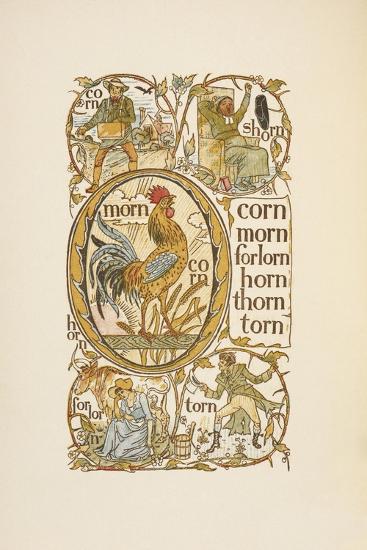 co
rn
shorn
morn
co
rn
corn
morn
forlorn
horn
thorn
torn
horn
forlor
n
torn